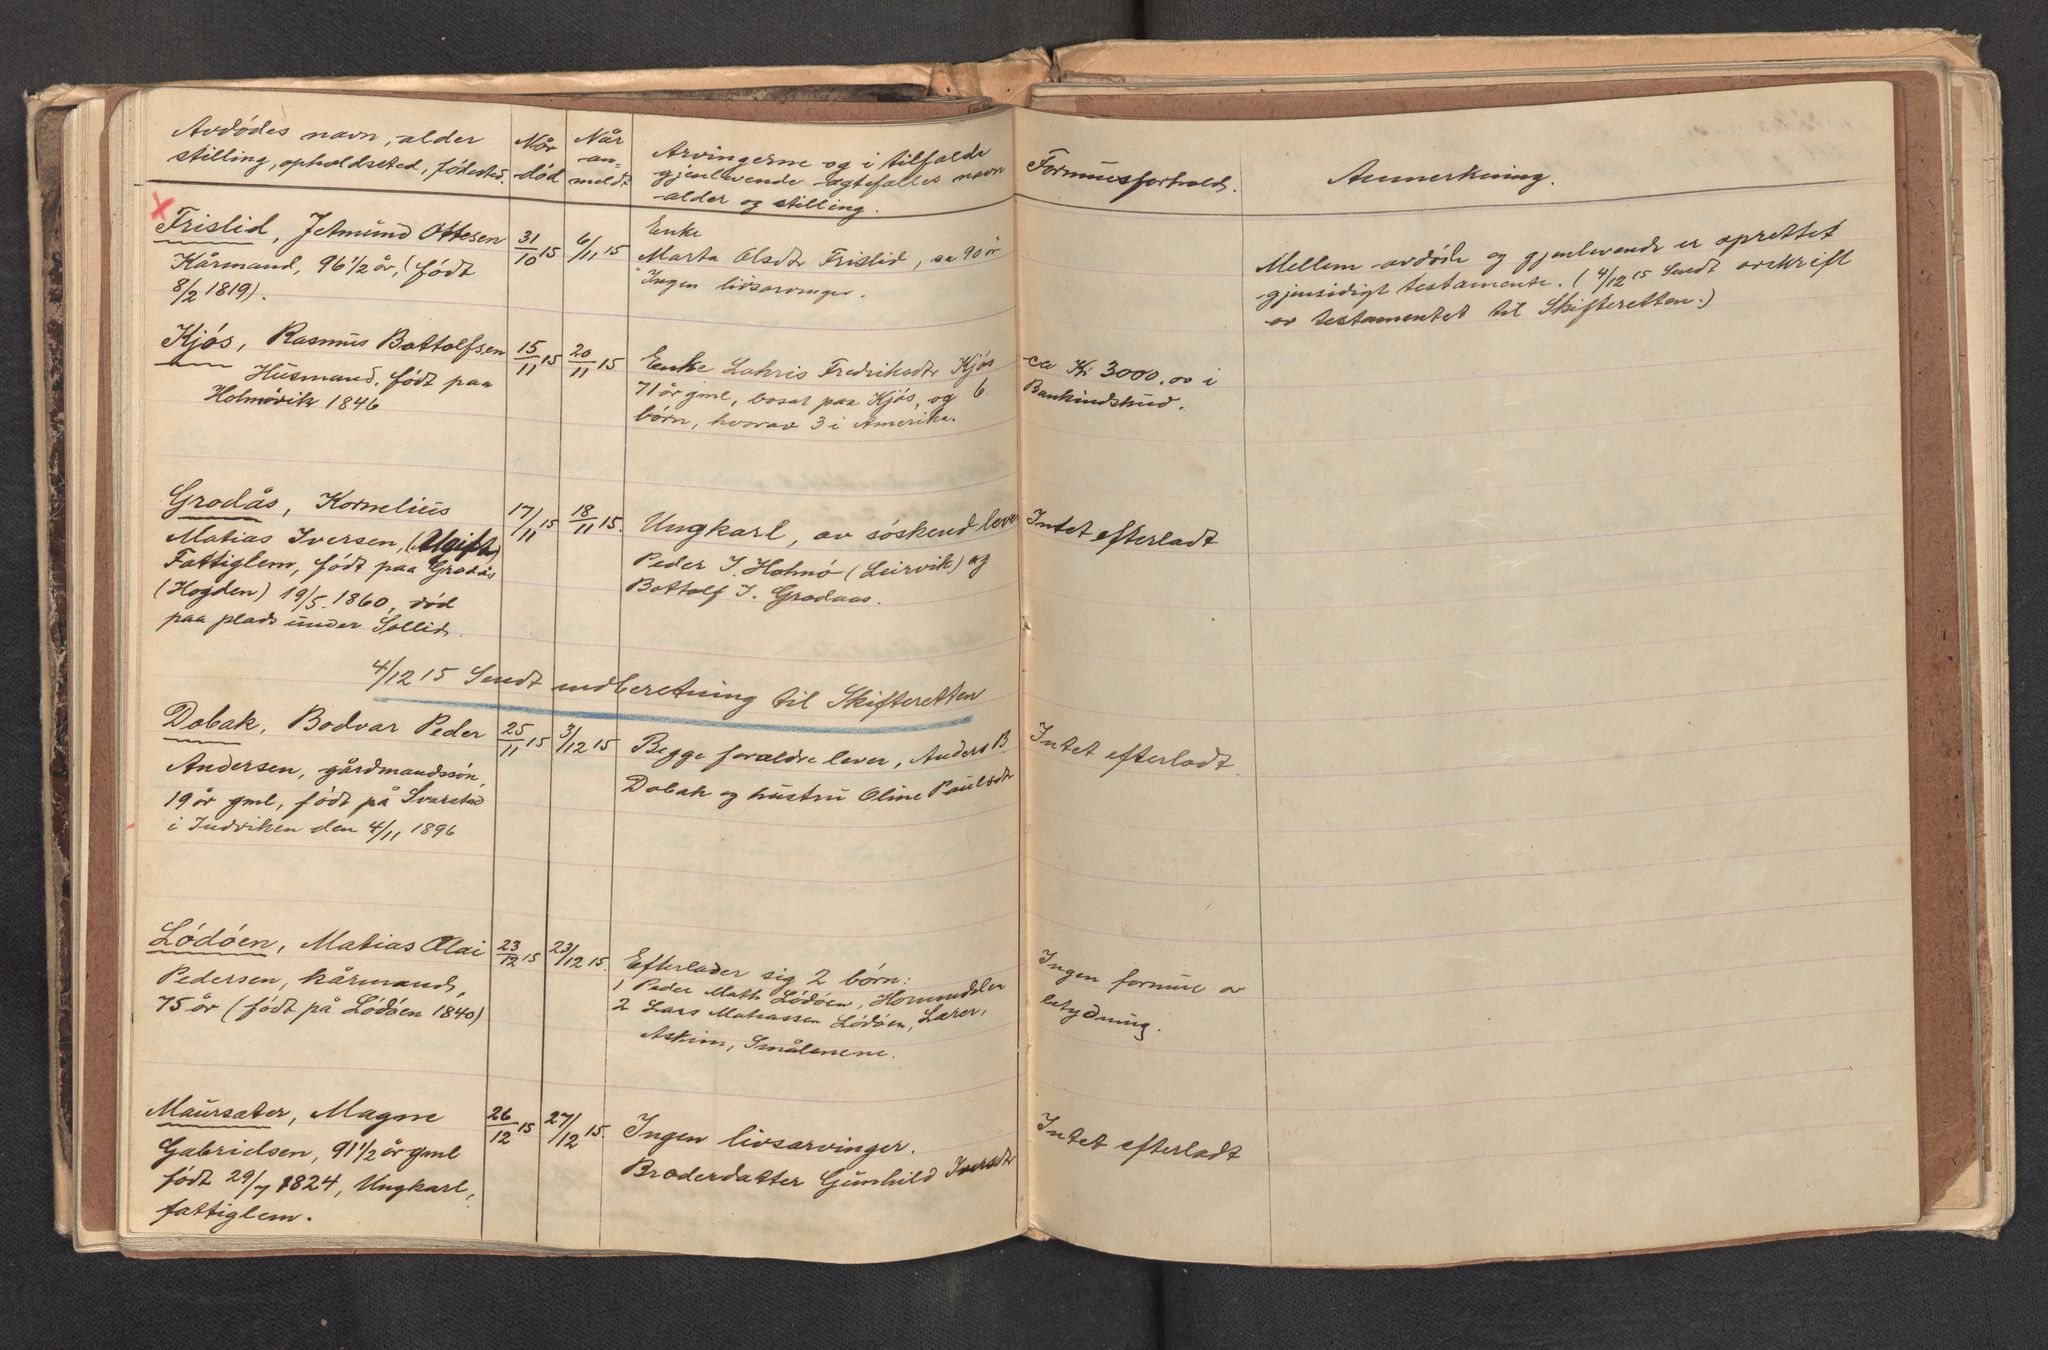 Avdødes navn, alder
stilling, opholdssted, fødested.
Når
død
Når
an-
meldt
Arvingerne og i tilfælde
gjenlevende ægtefælles navn
alder og stilling.
Formuesforhold.
Anmerkning.
Frislid, Jetmund Ottesen
Kårmand, 96 1/2 år, (født
8/2 1819).
31/10 15
6/11 15
Enke
Marta Olsdtr Frislid, ca 90 år
Ingen livsarvinger.
Mellem avdøde og gjenlevende er oprettet
gjensidigt testamente. (4/12 15 Sendt avskrift
av testamentet til Skifteretten.)
Kjøs, Rasmus Bottolfsen
Husmand. født paa
Holmøvik 1846
15/11 15
20/11 15
Enke Lahris Fredriksdtr Kjøs
71 år gml, bosat paa Kjøs, og 6
børn, hvorav 3 i Amerika.
ca Kr 3000.00 i
Bankindskud.
Grodås, Kornelius
Matias Iversen, (Ugift)
Fattiglem, født paa Grodås
(Hogden) 19/5. 1860, død
paa plads under Sollid.
17/11 15
18/11 15.
Ungkarl, av søskend lever
Peder I. Holmø (Leirvik) og
Bottolf I. Grodaas.
Intet efterladt
4/12 15 Sendt indberetning til Skifteretten
Dobak, Bodvar Peder
Andersen, gårdmandssøn,
19 år gml, født på Svarstad
i Indviken den 4/11 1896
25/11 15
3/12 15
Begge forældre lever, Anders B.
Dobak og hustru Oline Paulsdtr
Intet efterladt.
Lødøen, Matias Olai
Pedersen, kårmand,
75 år (født på Lødøen 1840)
23/12 15
23/12 15.
Efterlader sig 2 børn:
1 Peder Math Lødøen, Hornindalen
2 Lars Matiassen Lødøen, Lærer,
Askim, Smålenene.
Ingen formue av
betydning.
Maursæter, Magne
Gabrielsen, 91 1/2 år gml
født 29/7 1824, Ungkarl,
fattiglem.
26/12 15
27/12 15.
Ingen livsarvinger.
Broderdatter Gunhild Iversdtr
Intet efterladt